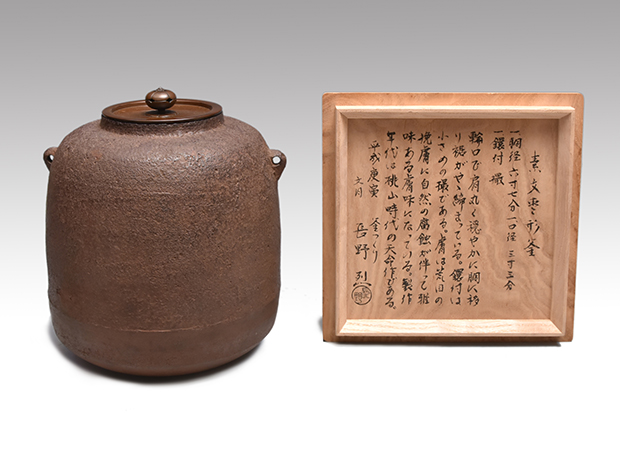 素文棗形釜
一胴径 六寸七分 一口径 三寸三分
一鐶付 撮
輪口で肩丸く穏やかに胴に移
り裾がやゝ締まっている。鐶付は
小さめの環である。膚は荒目の
挽膚に自然の腐蝕が伴って雅
味ある膚味になっている。製作
年代は桃山時代の天命作である。
平成庚寅 釜つくり
文月 長野 烈